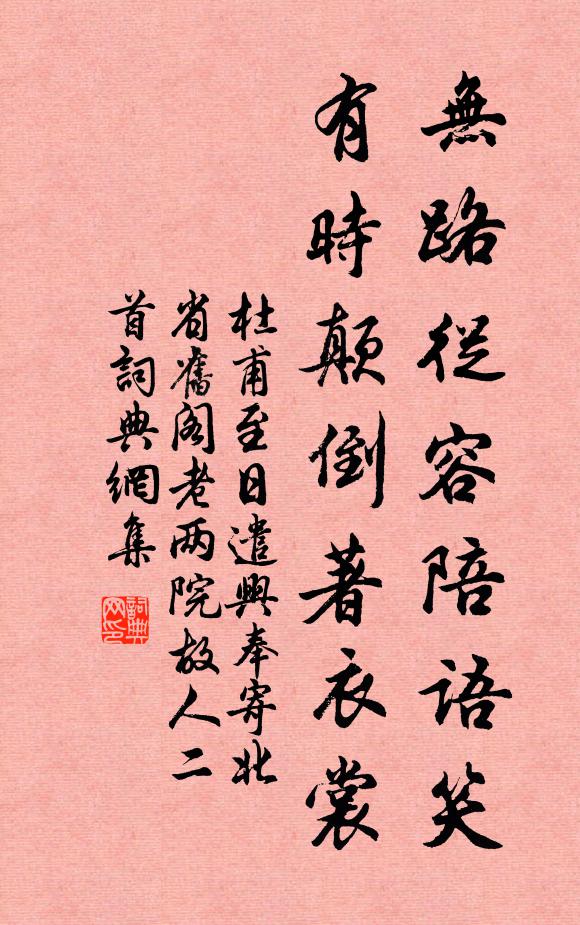 無路從容陪語笑
有時顛倒著衣裳
杜甫至日遣興奉寄北
省舊閣老兩院故人二
首詞典網集
詞典
网印